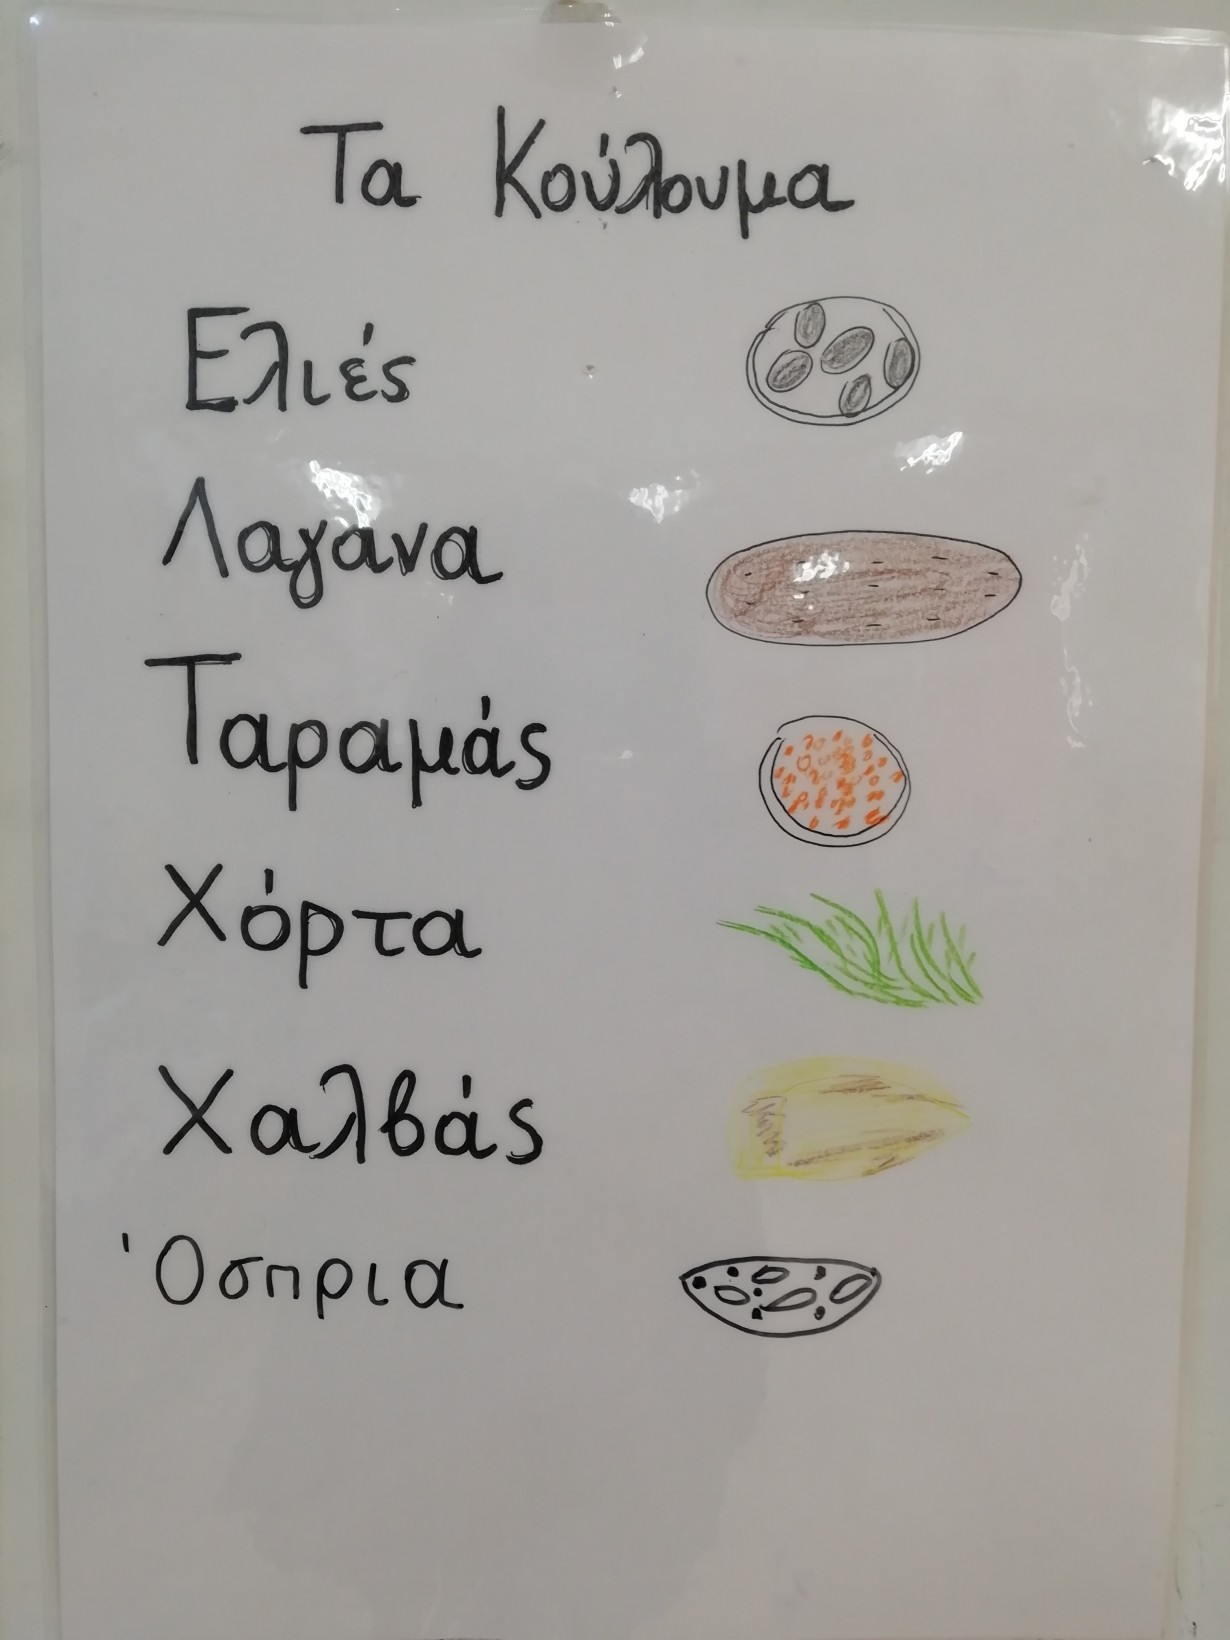 Τα Κούλουμα
Ελιές
Λαγανα
Ταραμάς
Χόρτα
Χαλβάς
Όσπρια